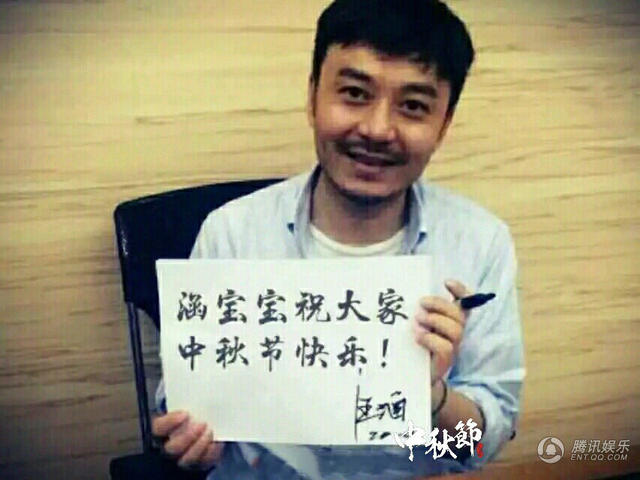 涵宝宝祝大家
中秋节快乐！
王涵
20
中秋節
腾讯娱乐
ENT.QQ.COM